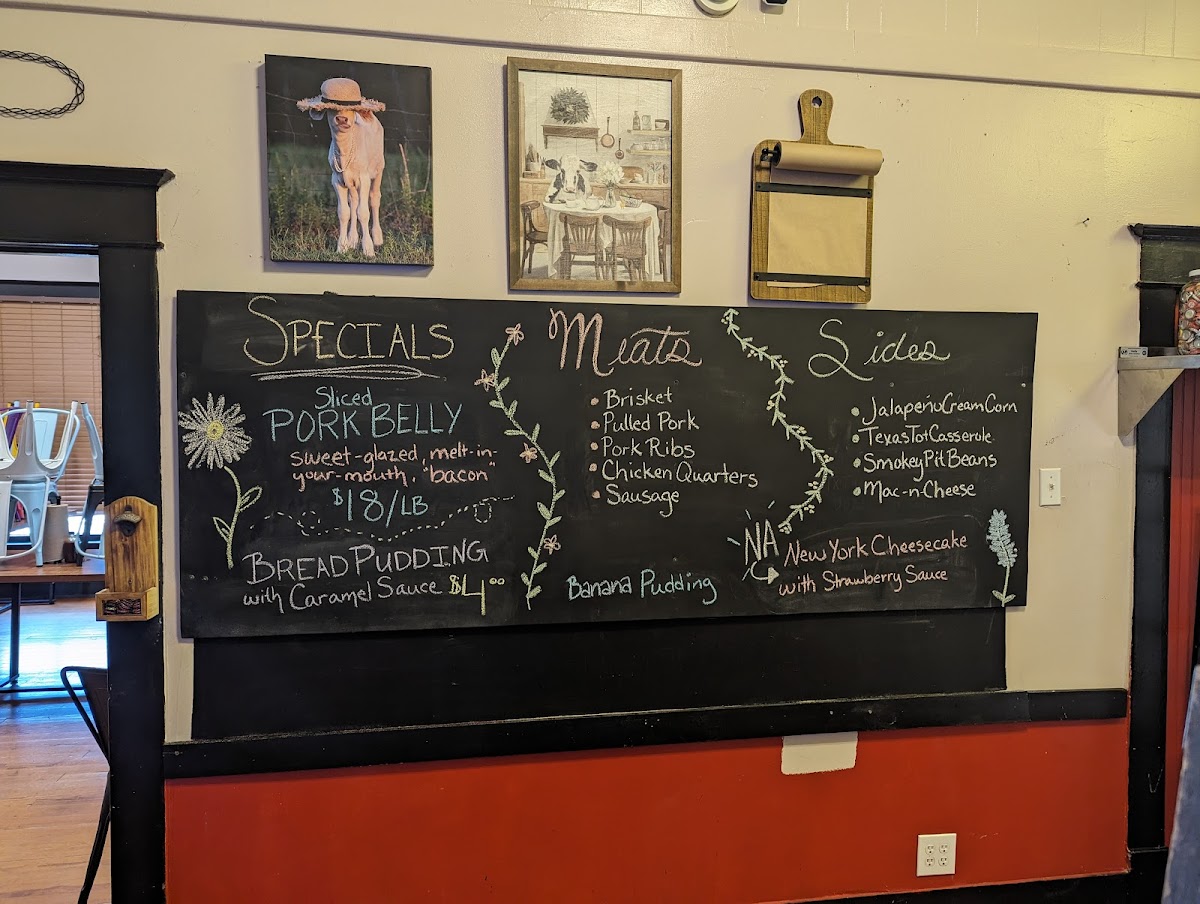 SPECIALS
Sliced
PORK BELLY
sweet-glazed, melt-in-
your-mouth, "bacon"
$18/LB
BREAD PUDDING
with Caramel Sauce $4.00
Meats
• Brisket
• Pulled Pork
• Pork Ribs
• Chicken Quarters
• Sausage
Banana Pudding
Sides
• Jalapeño Cream Corn
• Texas Tot Casserole
• Smokey Pit Beans
• Mac-n-Cheese
NA
New York Cheesecake
with Strawberry Sauce